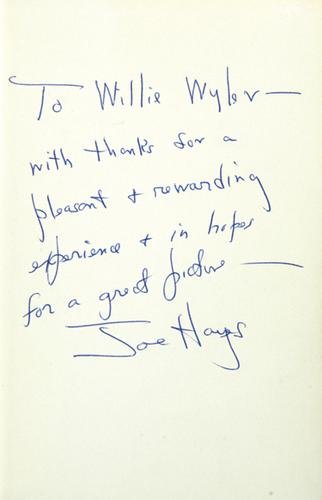 To Willie Wyler —
with thanks for a
pleasant + rewarding
experience + in hopes
for a great picture —
Joe Hayes